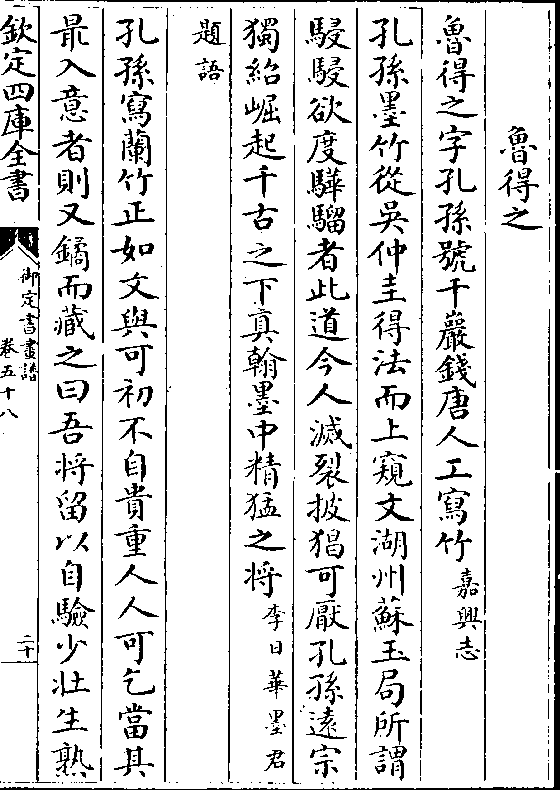 魯得之
魯得之字孔孫號千巖錢唐人工寫竹嘉興志
孔孫墨竹從吳仲圭得法而上窺文湖州蘇玉局所謂
駸駸欲度驊騮者此道今人滅裂披猖可厭孔孫遠宗
獨紹崛起千古之下真翰墨中精猛之将李日華墨君
題語
孔孫寫蘭竹正如文與可初不自貴重人人可乞當其
最入意者則又鐍而藏之曰吾将留以自驗少壯生熟
欽定四庫全書
御定書畫譜
卷五十八
二十